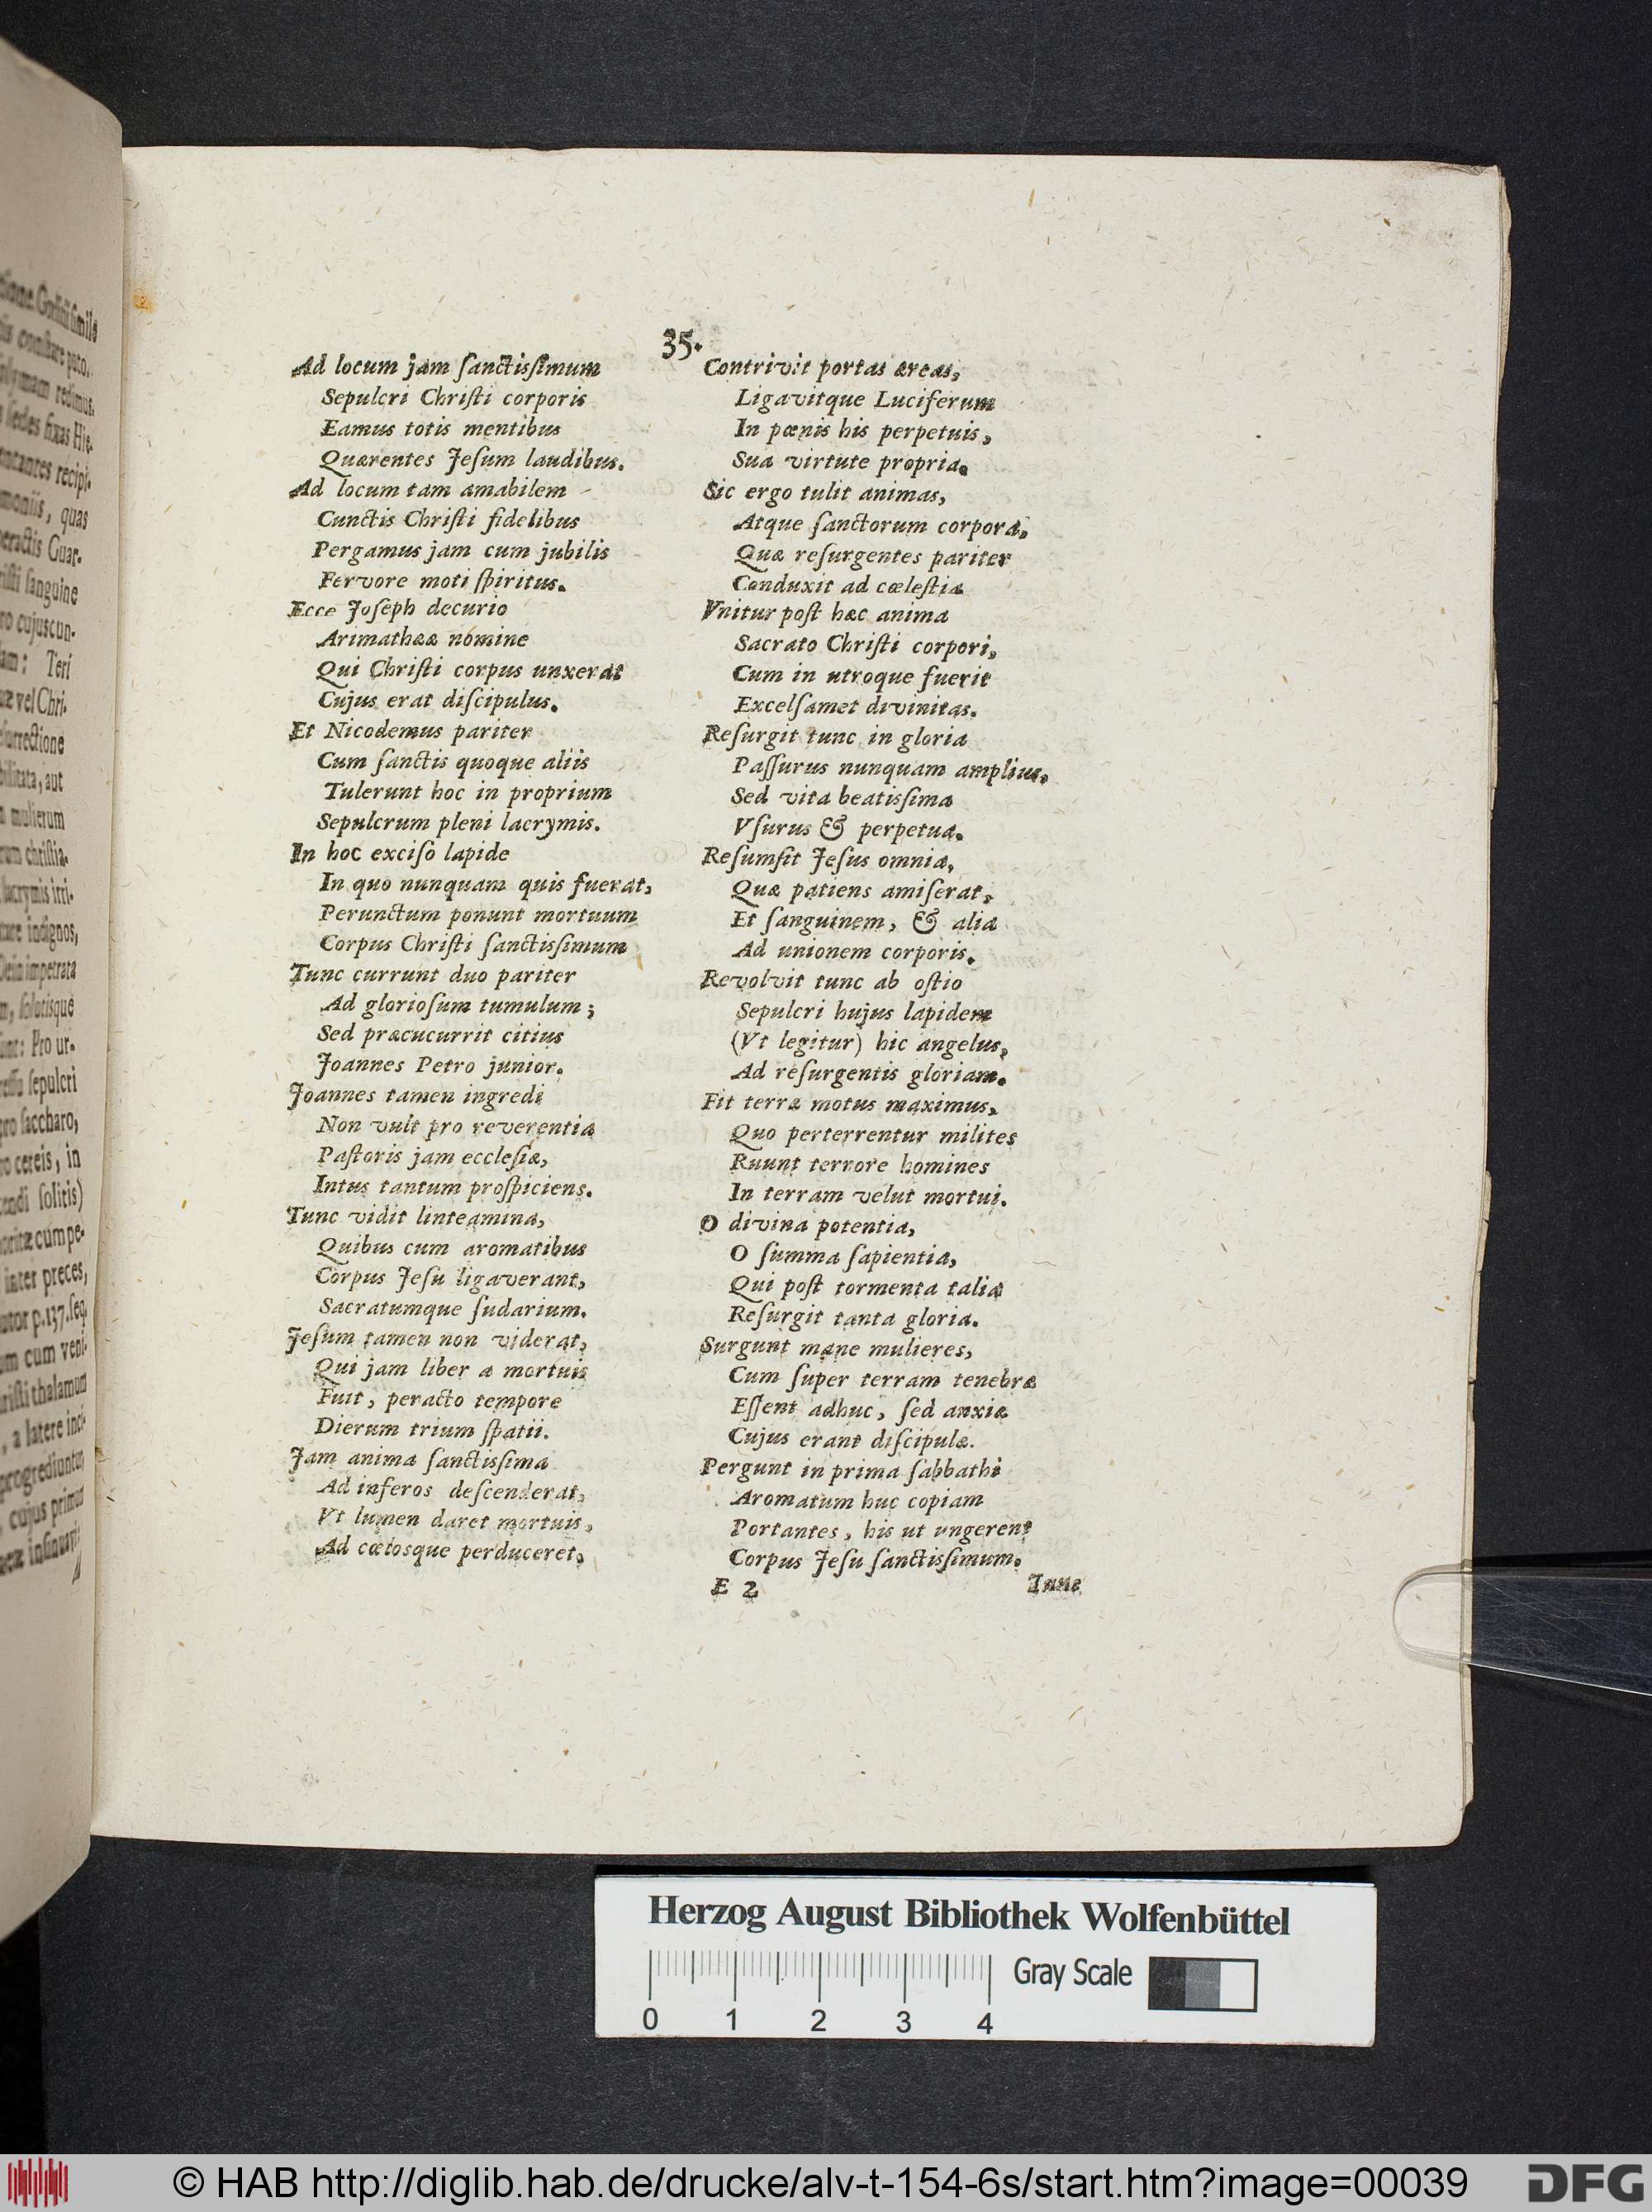 35.
Ad locum jam ſanctisſimum
Sepulcri Chriſti corporis
Eamus totis mentibus
Quærentes Jeſum laudibus.
Ad locum tam amabilem
Cunctis Chriſti fidelibus
Pergamus jam cum jubilis
Fervore moti ſpiritus.
Ecce Joſeph decurio
Arimathææ nomine
Qui Chriſti corpus unxerat
Cujus erat diſcipulus.
Et Nicodemus pariter
Cum ſanctis quoque aliis
Tulerunt hoc in proprium
Sepulcrum pleni lacrymis.
In hoc exciſo lapide
In quo nunquam quis fuerat,
Perunctum ponunt mortuum
Corpus Chriſti ſanctisſimum
Tunc currunt duo pariter
Ad glorioſum tumulum;
Sed præcucurrit citius
Joannes Petro junior.
Joannes tamen ingredi
Non vult pro reverentia
Paſtoris jam eccleſiæ,
Intus tantum proſpiciens.
Tunc vidit linteamina,
Quibus cum aromatibus
Corpus Jeſu ligaverant,
Sacratumque ſudarium.
Jeſum tamen non viderat,
Qui jam liber a mortuis
Fuit, peracto tempore
Dierum trium ſpatii.
Jam anima ſanctisſima
Ad inferos deſcenderat,
Vt lumen daret mortuis,
Ad cœlosque perduceret,
Contrivit portas æreas,
Ligavitque Luciferum
In pœnis his perpetuis,
Sua virtute propria.
Sic ergo tulit animas,
Atque ſanctorum corpora,
Quæ reſurgentes pariter
Conduxit ad cœleſtia
Vnitur poſt hæc anima
Sacrato Chriſti corpori,
Cum in utroque fuerit
Excelſamet divinitas.
Reſurgit tunc in gloria
Paſſurus nunquam amplius,
Sed vita beatisſima
Vſurus & perpetua.
Reſumſit Jeſus omnia,
Quæ patiens amiſerat,
Et ſanguinem, & alia
Ad unionem corporis.
Revolvit tunc ab oſtio
Sepulcri hujus lapidem
(Vt legitur) hic angelus,
Ad reſurgentis gloriam.
Fit terræ motus maximus,
Quo perterrentur milites
Ruunt terrore homines
In terram velut mortui.
O divina potentia,
O ſumma ſapientia,
Qui poſt tormenta talia
Reſurgit tanta gloria.
Surgunt mane mulieres,
Cum ſuper terram tenebræ
Eſſent adhuc, ſed anxiæ
Cujus erant diſcipulæ.
Pergunt in prima ſabbathi
Aromatum huc copiam
Portantes, his ut ungerent
Corpus Jeſu ſanctisſimum.
E 2
Tunc
Herzog August Bibliothek Wolfenbüttel
0 1 2 3 4
Gray Scale
© HAB http://diglib.hab.de/drucke/alv-t-154-6s/start.htm?image=00039
DFG